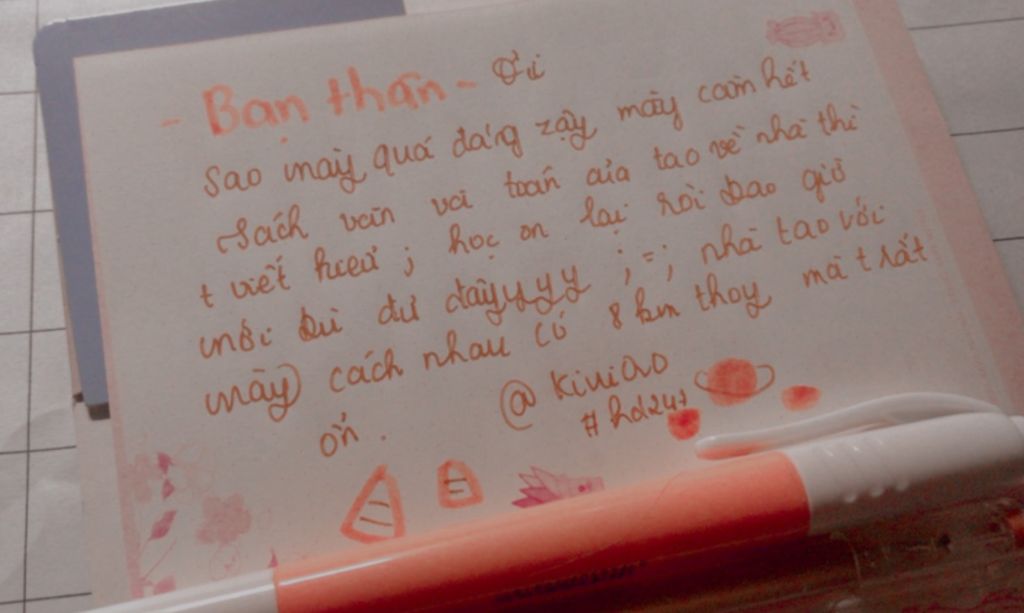 - Bạn thân - Ơi
Sao mày quá đáng zậy mày cầm hết
sách văn và toán của tao về nhà thì
t viết kiểu j học ôn lại rồi bao giờ
mới bù đủ đâyyyyy ; = ; nhà tao với
mày cách nhau có 8 km thoy mà t rất
ổn .
@ KiwiOvO
#hd247